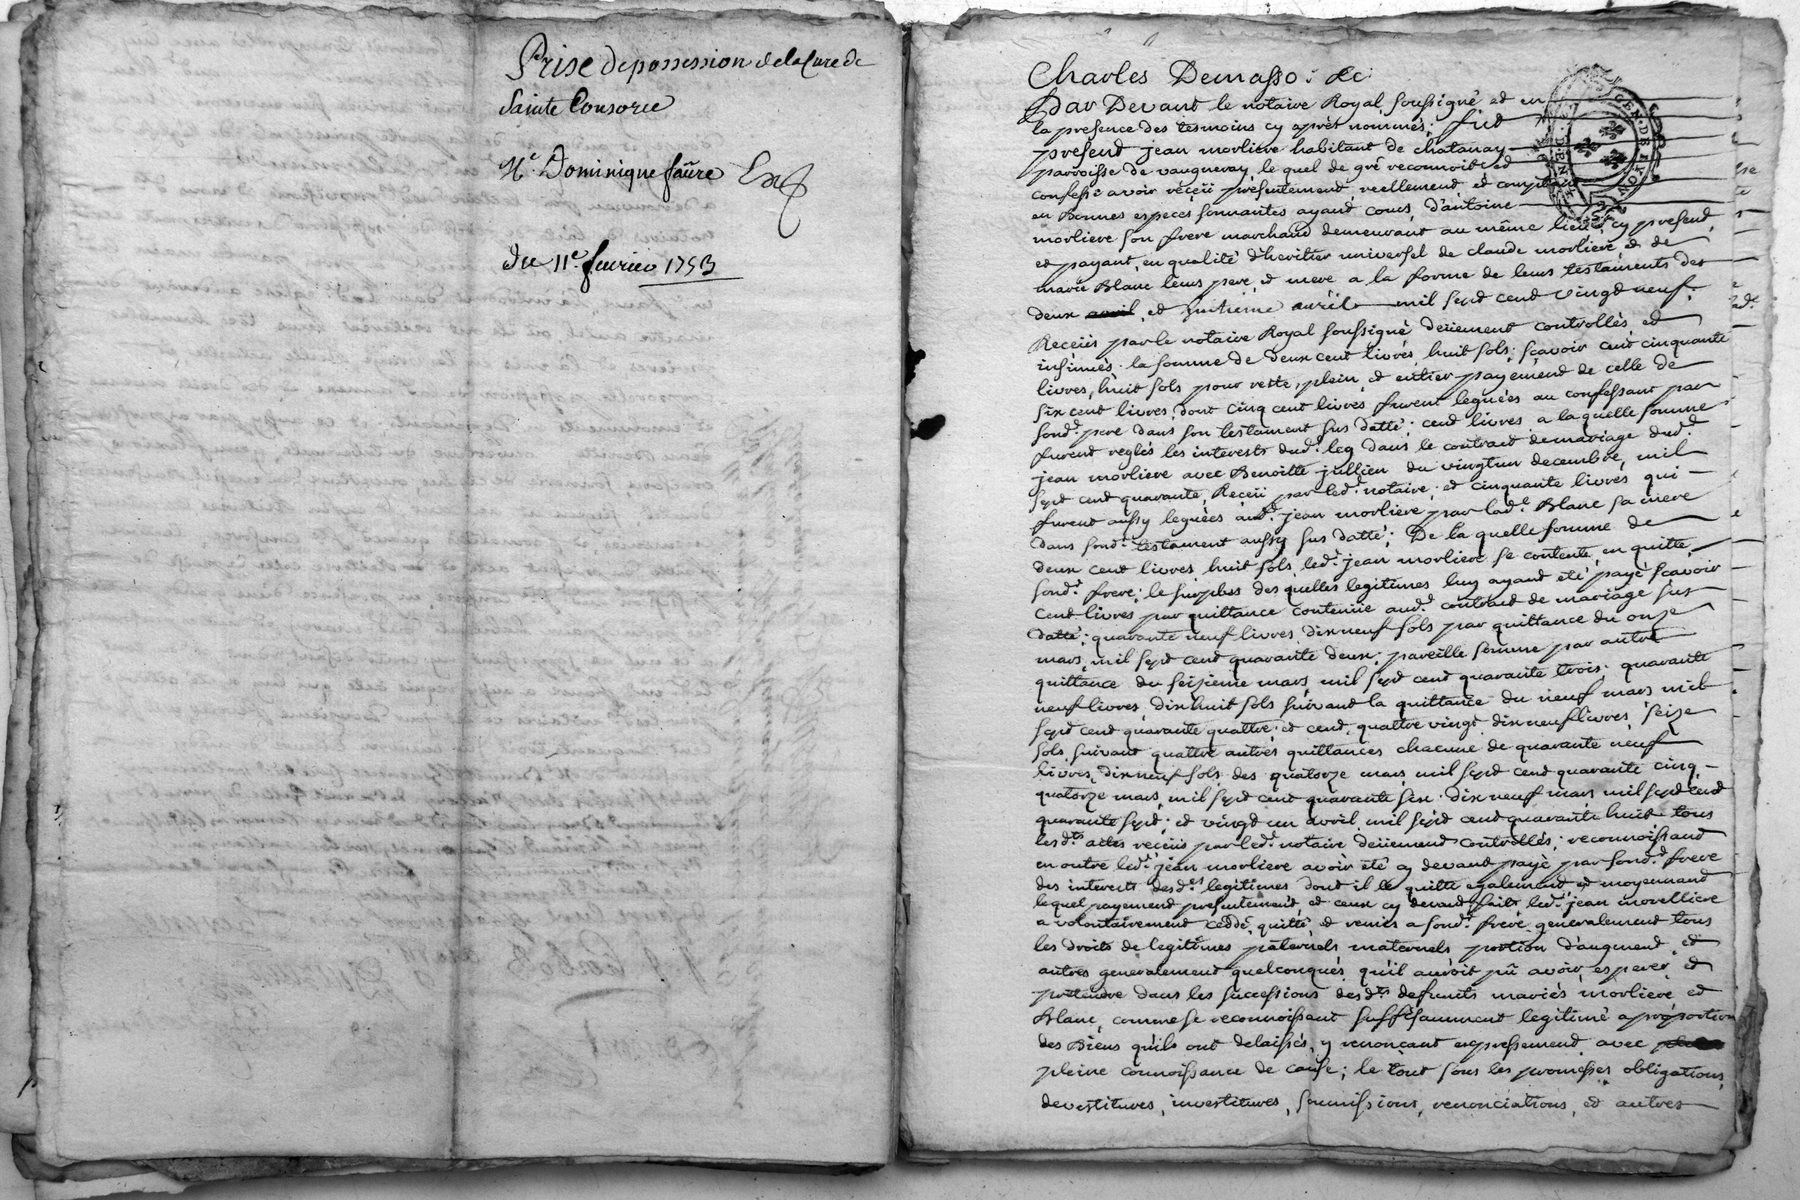 Prise de possession de la Cure de
Sainte Consorce
Me. Dominique faüre
du 11e. fevrier 1753
Charles Demasso: &c
Par Devant le notaire Royal soussigné et en
la presence des tesmoins cy aprèt nommés; fut
present jean morliere habitant de chatanay
parroisse de vaugneray, le quel de gré reconnoit et
confesse avoir reçeü présentement, reellement, et comptant
en Bonnes especes sonnantes ayant cours, d'antoine
morliere son frere marchand demeurant au même lieu, cy present,
et payant, en qualité d'heritier universel de claude morliere et de
marie Blanc leurs pere, et mere a la forme de leurs testaments des
deux et huitieme avril mil sept cent vingt neuf.
Receüs par le notaire Royal soussigné deüement controllés, et
insinués. la somme de deux cent livres, huit sols; sçavoir cent cinquante
livres, huit sols pour reste, plein, et entier payement de celle de
six cent livres, dont cinq cent livres furent leguées au confessant par
sond. pere dans son testament sus datté; cent livres a la quelle somme
furent reglés les interests dud. leg dans le contract de mariage dud.
jean morliere avec Benoitte jullien du vingtun decembre, mil
sept cent quarante, Receü par led. notaire; et cinquante livres qui
furent aussy leguées aud. jean morliere par lad. Blanc sa mere
dans sond. testament aussy sus datté; De la quelle somme de
deux cent livres huit sols led. jean morliere se contente, en quitte
sond. frere; le surplus des quelles legitimes luy ayant été payé sçavoir
cent livres par quittance contenüe aud. contract de mariage sus
datté; quarante neuf livres dix neuf sols par quittance du onze
mars, mil sept cent quarante deux; pareille somme par autre
quittance du seizieme mars, mil sept cent quarante trois. quarante
neuf livres, dix huit sols suivant la quittance du neuf mars mil
sept cent quarante quattre; et cent, quattre vingt dix neuf livres, seize
sols, suivant quattre autres quittances chacune de quarante neuf
livres, dix neuf sols des quatorze mars mil sept cent quarante cinq
quatorze mars, mil sept cent quarante six. dix neuf mars mil sept cent
quarante sept; et vingt un avril mil sept cent quarante huit tous
lesdts actes receüs par led. notaire deüement controllés; reconnoissant
en outre led. jean morliere avoir été cy devant payé par sond. frere
des interests desdes. legitimes dont il le quitte egalement et moyennant
lequel payement presentement, et ceux cy devant faits led. jean morelliere
a volontairement ceddé, quitté, et remis a sond. frere generalement tous
les droits de legitimes paternels maternels portion d'augment, et
autres generalement quelconques qu'il auroit pû avoir, esperer et
pretendre dans les successions desdts. defunts mariés morliere et
Blanc, comme se reconnoissant suffisamment legitimé a proportion
des Biens qu'ils ont delaissés, y renonçant expressement avec
pleine connoissance de cause; le tout sous les promesses obligations,
devestitures, investitures, soumissions, renonciations, et autres